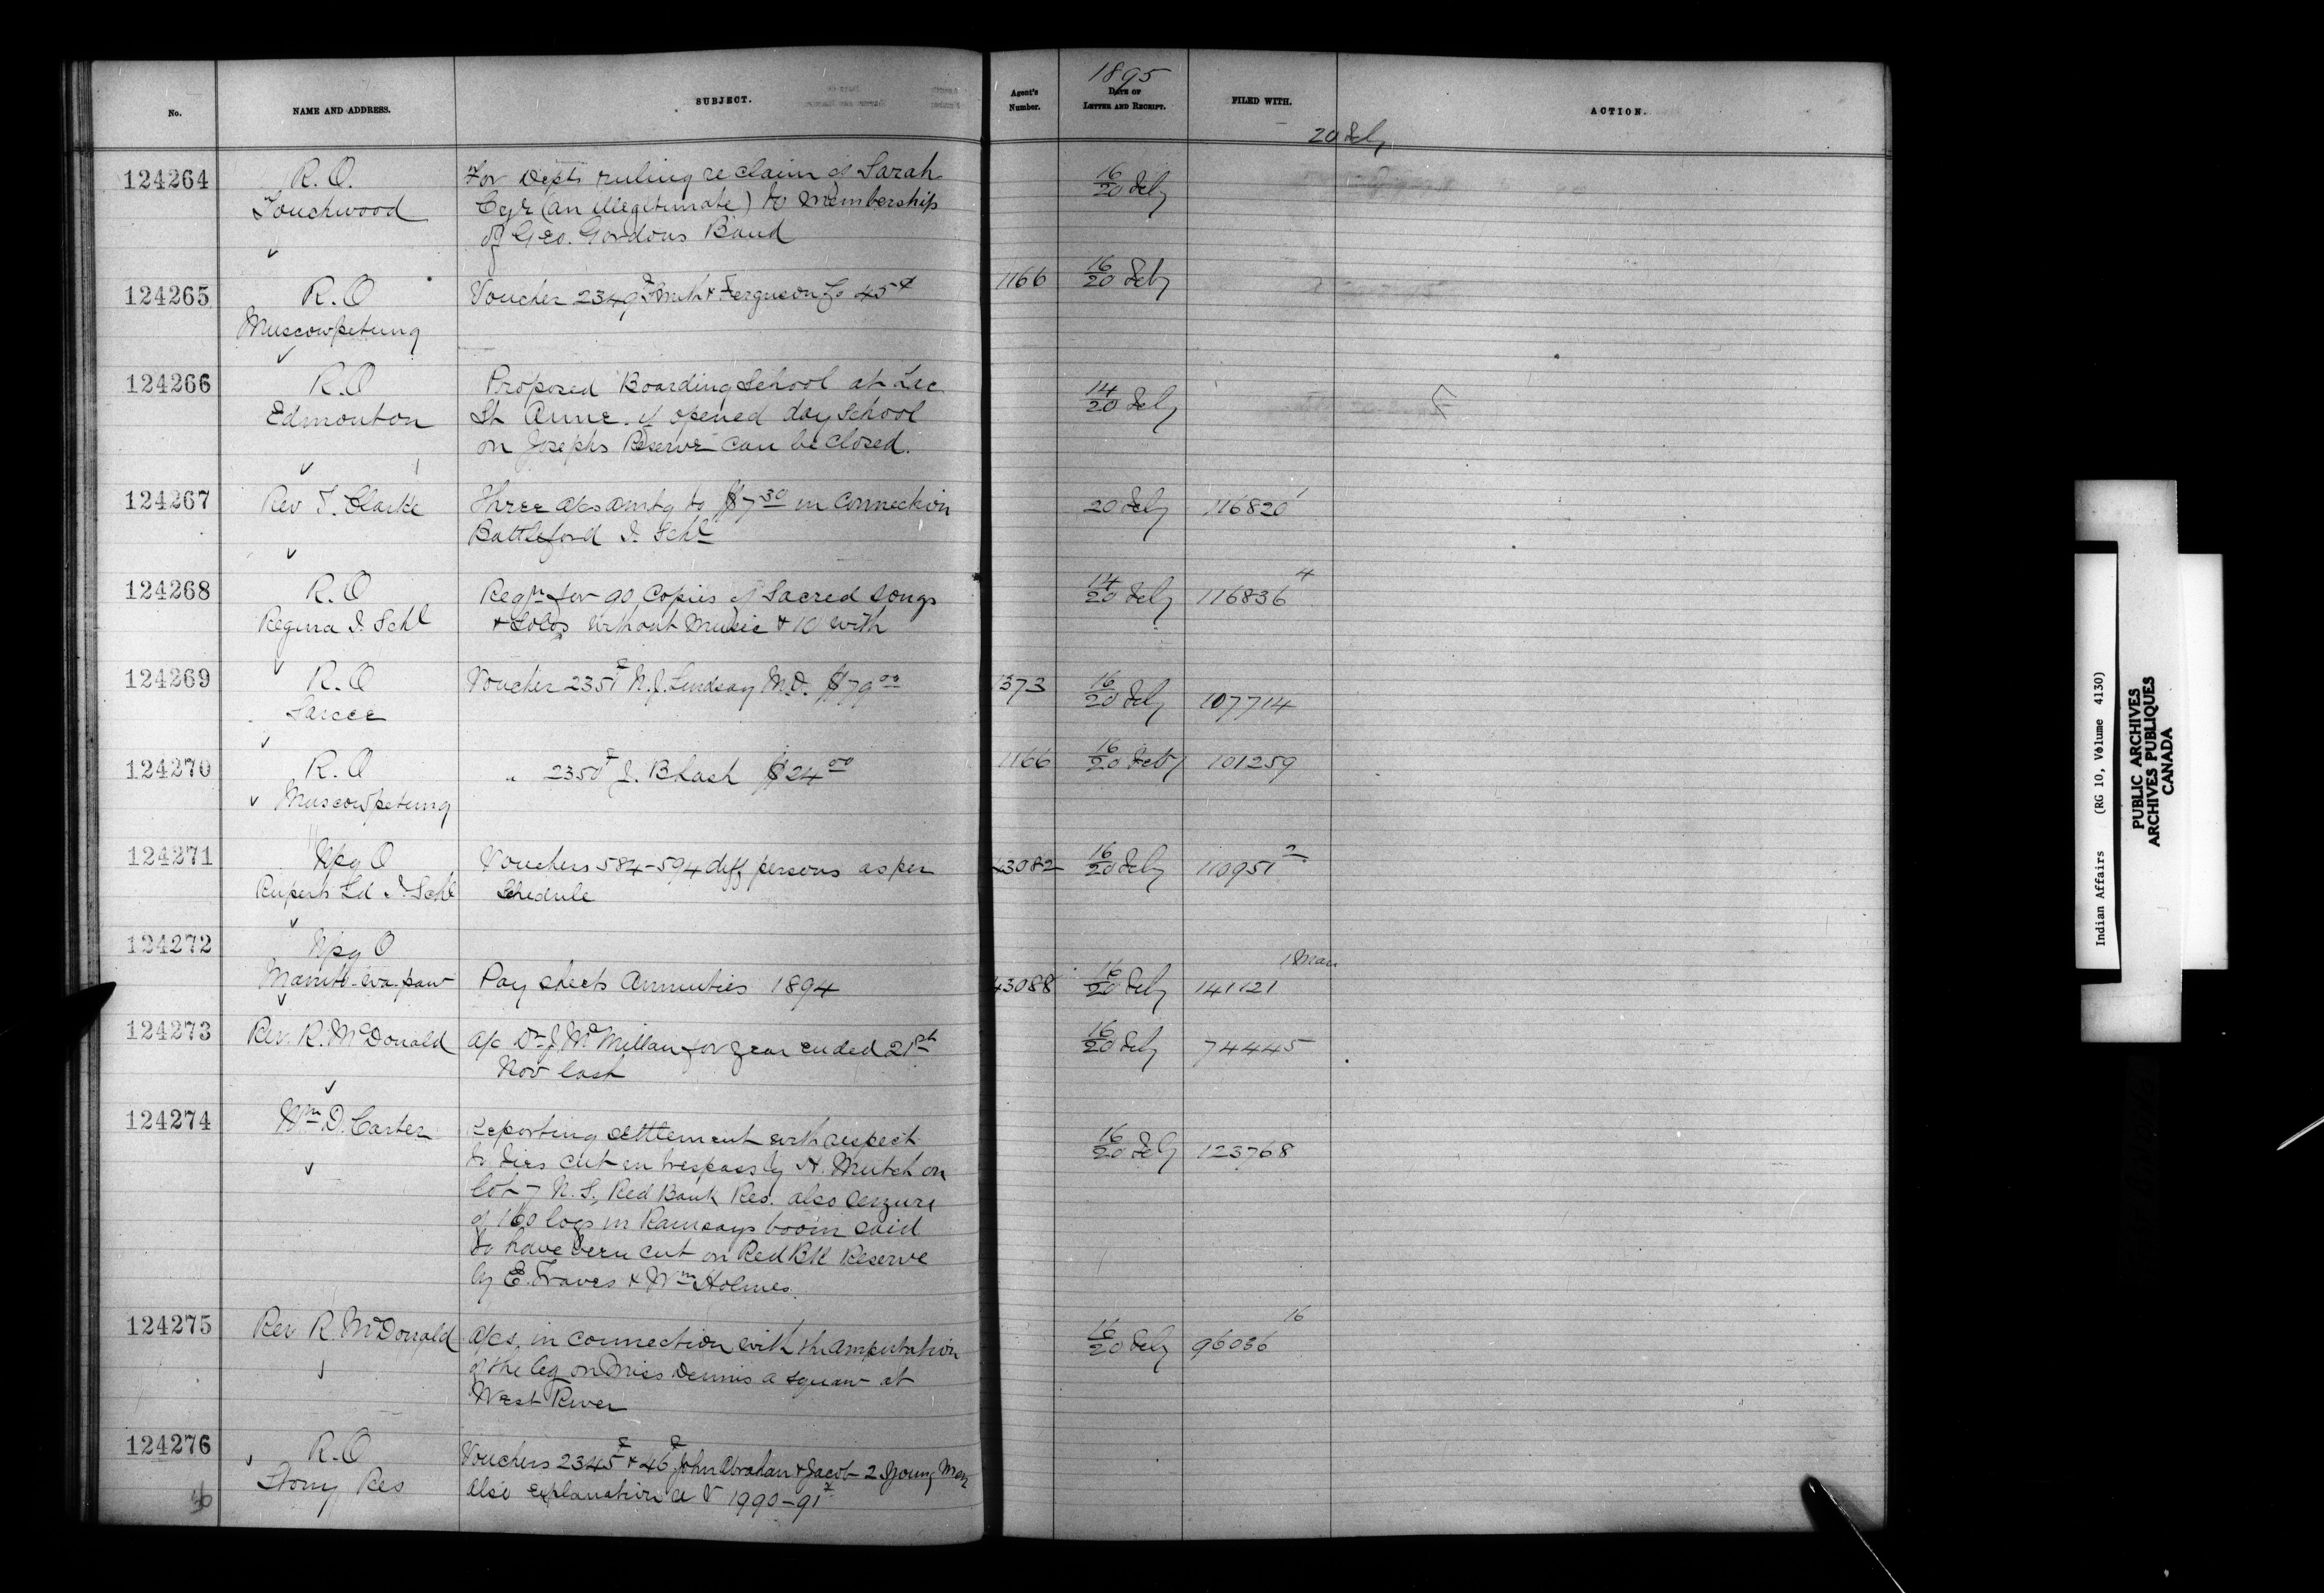 No.
NAME AND ADDRESS.
SUBJECT.
Agent's
Number.
1895
DATE OF
LETTER AND RECEIPT.
FILED WITH.
ACTION.
20 Feby
124264
R.O.
Touchwood
For Depts ruling re claim of Sarah
Cyr (an illegitimate) to membership
of Geo. Gordons Band
16/20 Feby
124265
R.O
Muscowpetung
Voucher 2349 Smith & Ferguson Co 45¢
1166
16/20 Feby
124266
R.O
Edmonton
Proposed Boarding School at Lac
St Anne. if opened day school
on Josephs Reserve can be closed.
14/20 Feby
124267
Rev T. Clarke
Three a/cs amtg to $7.30 in connection
Battleford I. Schl
20 Feby
116820 1
124268
R.O
Regina I. Schl
Reqn for 90 Copies of Sacred songs
& Solos without music & 10 with
14/20 Feby
116836 4
124269
R.O
Sarcee
Voucher 2351 N.J. Lindsay M.D. $79.00
1373
16/20 Feby
107714
124270
R.O
Muscowpetung
" 2350 J. B. Lash $24.00
1166
16/20 Feby
101259
124271
Wpg O
Ruperts Ld I. Schl
Vouchers 584-594 diff persons as per
Schedule
43082
16/20 Feby
110951 2
124272
Wpg O
Manito-wa-paw
Pay sheets Annuities 1894
43088
16/20 Feby
141121
124273
Rev. R. McDonald
A/c Dr J McMillan for year ended 21st
Nov last
16/20 Feby
74445
124274
Wm D. Carter
Reporting settlement with respect
to ties cut in trespass by A. Mutch on
lot 7 N. S. Red Bank Res. also seizure
of 160 logs in Ramsays boom said
to have been cut on Red Bk Reserve
by E. Traves & Wm Holmes.
16/20 Feby
123768
124275
Rev R. McDonald
A/cs. in connection with the amputation
of the leg on Miss Dennis a squaw at
West River
16/20 Feby
96036 16
124276
R.O
Stony Res
Vouchers 2345 & 46 John Abraham & Jacob 2 Young Men
also explanation re V 1990-91
Indian Affairs (RG 10, Volume 4130)
PUBLIC ARCHIVES
ARCHIVES PUBLIQUES
CANADA